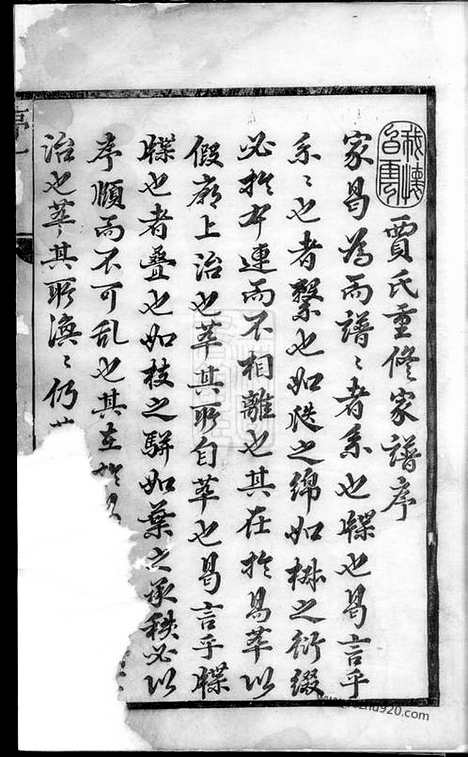 賈氏重修家譜序
家曷為而譜〻者系也牒也曷言乎
系〻也者繫也如瓞之綿如椒之衍綴
必於本連而不相離也其在於易萃以
假廟上治也萃其所自萃也曷言乎牒
牒也者疊也如枝之駢如葉之承秩必以
序順而不可乱也其在於
治也萃其所渙〻仍
序一